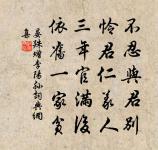 不忍與君別
憐君仁義人
三年官滿後
依舊一家貧
晏殊增李陽孫詞典網
集